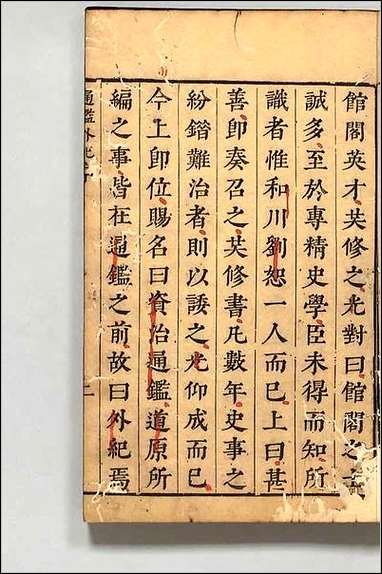 館閣英才共修之光對曰館閣之士
誠多至於專精史學臣未得而知所
識者惟和川劉恕一人而已上曰甚
善即奏召之共修書凡數年史事之
紛錯難治者則以諉之光仰成而已
今上即位賜名曰資治通鑑道原所
編之事皆在通鑑之前故曰外紀焉
通鑑外紀序
二